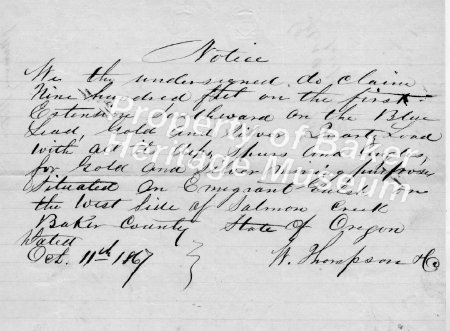 Notice
We the undersigned do claim
Nine hundred feet on the first
Extension on the Blue
Lead, Gold and Silver Quartz Lead
with all its Dips Spurs and
for Gold and Silver Mining purposes
Situated on Emigrant
the West side of Salmon Creek
Baker County State of Oregon
Dated
Oct. 11th 1867
W. Thompson & Co
Property of Baker
Heritage Museum